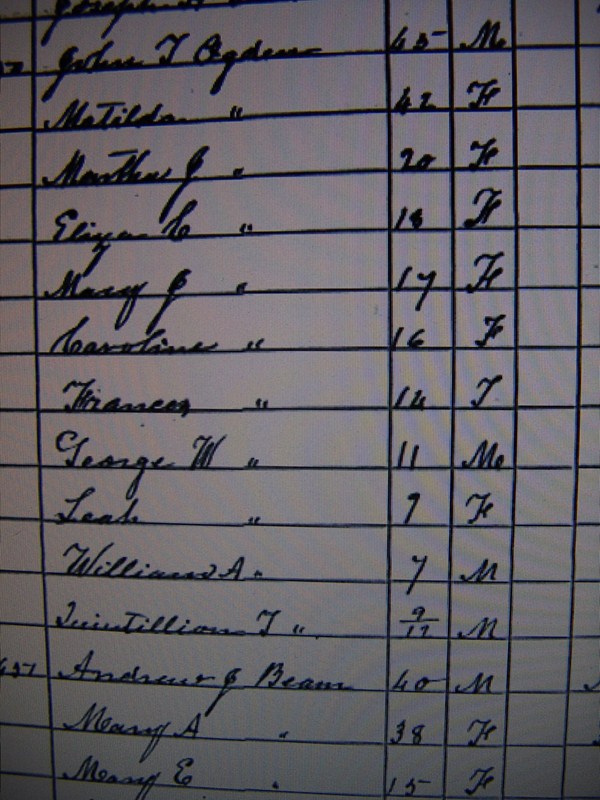 Joseph
John T Ogden 45 M
Matilda " 42 F
Martha J " 20 F
Eliza C " 18 F
Mary J " 17 F
Caroline " 16 F
Frances " 14 F
George W " 11 M
Leah " 9 F
William A " 7 M
Quintillion T " 9/12 M
Andrew J Beam 40 M
Mary A " 38 F
Mary E " 15 F